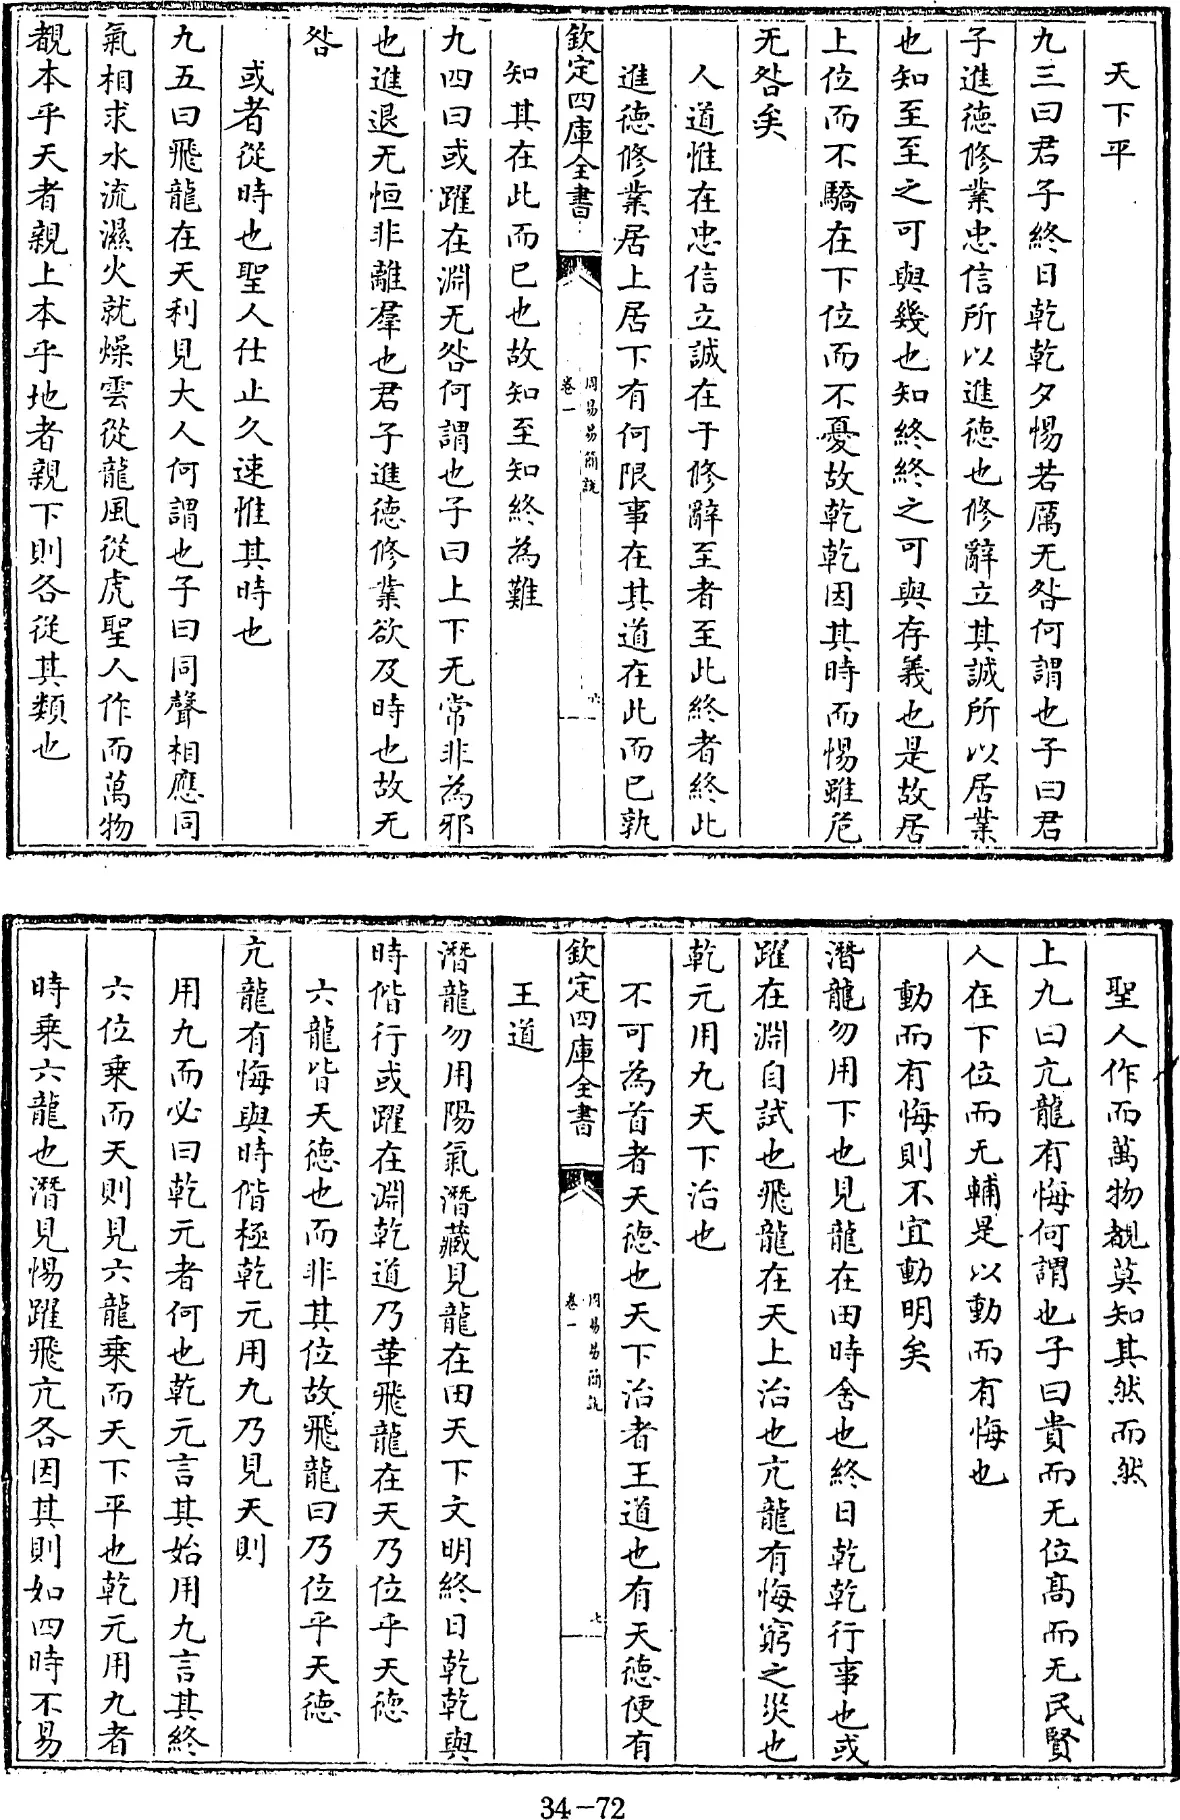 天下平
九三曰君子終日乾乾夕惕若厲无咎何謂也子曰君
子進徳修業忠信所以進徳也修辭立其誠所以居業
也知至至之可與幾也知終終之可與存義也是故居
上位而不驕在下位而不憂故乾乾因其時而惕雖危
无咎矣
人道惟在忠信立誠在于修辭至者至此終者終此
進徳修業居上居下有何限事在其道在此而已孰
欽定四庫全書
周易易簡説
卷一
六
知其在此而已也故知至知終為難
九四曰或躍在淵无咎何謂也子曰上下无常非為邪
也進退无恒非離羣也君子進徳修業欲及時也故无
咎
或者從時也聖人仕止久速惟其時也
九五曰飛龍在天利見大人何謂也子曰同聲相應同
氣相求水流濕火就燥雲從龍風從虎聖人作而萬物
覩本乎天者親上本乎地者親下則各從其類也
聖人作而萬物覩莫知其然而然
上九曰亢龍有悔何謂也子曰貴而无位高而无民賢
人在下位而无輔是以動而有悔也
動而有悔則不宜動明矣
潛龍勿用下也見龍在田時舍也終日乾乾行事也或
躍在淵自試也飛龍在天上治也亢龍有悔窮之災也
乾元用九天下治也
不可為首者天徳也天下治者王道也有天徳便有
欽定四庫全書
周易易簡説
卷一
七
王道
潛龍勿用陽氣潛藏見龍在田天下文明終日乾乾與
時偕行或躍在淵乾道乃革飛龍在天乃位乎天徳
六龍皆天徳也而非其位故飛龍曰乃位乎天徳
亢龍有悔與時偕極乾元用九乃見天則
用九而必曰乾元者何也乾元言其始用九言其終
六位乗而天則見六龍乗而天下平也乾元用九者
時乗六龍也潛見惕躍飛亢各因其則如四時不易
34-72